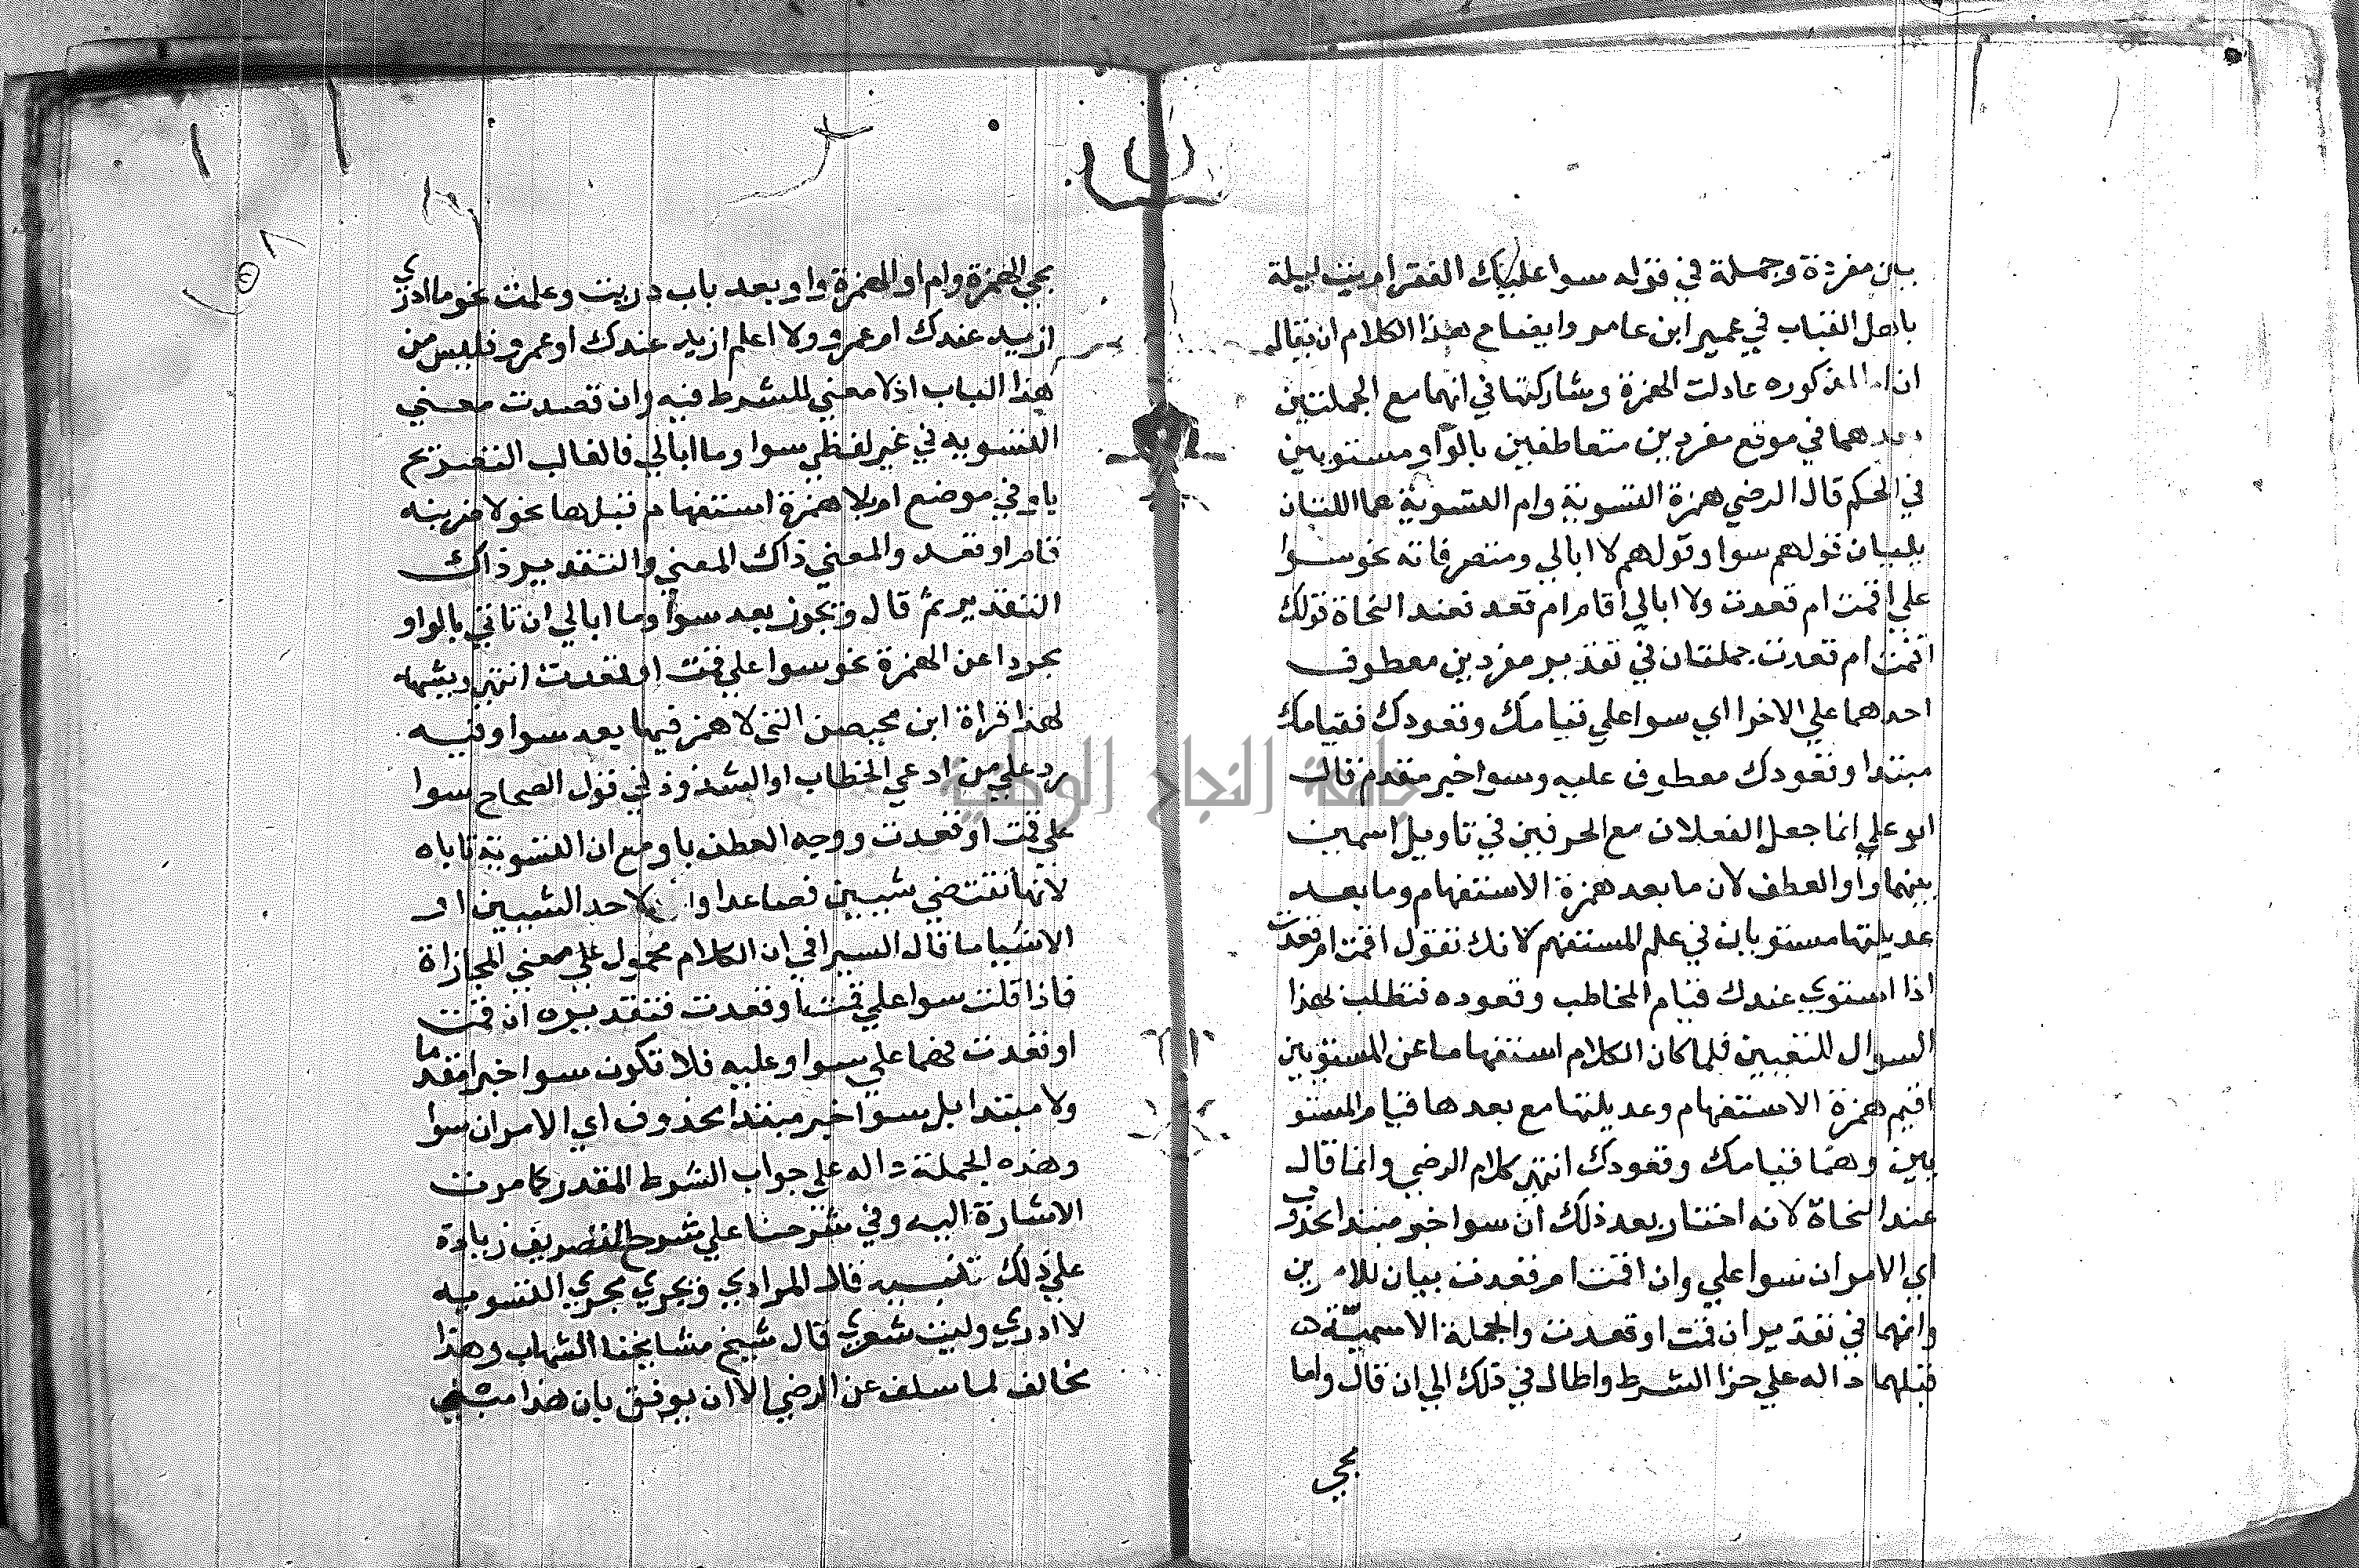 بين مفردة وجملة في قوله سوا عليك الفقر ام بت ليلة
باهل القباب في عمير ابن عامر وايضاح هذا الكلام ان يقال
ان ام المذكوره عادلت الهمزة وشاركتها في انهما مع الجملتين
بعدهما في موقع مفردين متعاطفين بالواو مستويين
في الحكم قال الرضي همزة التسوية وام التسوية هما اللتان
يليان قولهم سوا وقولهم لا ابالي ومتصرفاته نحو سوا
علي اقمت ام قعدت ولا ابالي اقام ام قعد فعند النحاة قولك
اقمت ام قعدت جملتان في تقدير مفردين معطوف
احدهما علي الاخر اي سوا علي قيامك وقعودك فقيامك
مبتدا وقعودك معطوف عليه وسوا خبر مقدم قال
ابو علي انما جعل الفعلان مع الحرفين في تاويل اسمين
بينهما واو العطف لان ما بعد همزة الاستفهام وما بعد
عديلتها مستويان في علم المستفهم لانك تقول اقمت ام قعدت
اذا استوي عندك قيام المخاطب وقعوده فتطلب بهذا
السوال التعيين فلما كان الكلام استفهاما عن المستويين
اقيم همزة الاستفهام وعديلتها مع بعدها قيام المستو
يين وهما قيامك وقعودك انتهي كلام الرضي وانما قال
عند النحاة لانه اختار بعد ذلك ان سوا خبر مبتدا محذوف
اي الامران سوا علي وان اقمت ام قعدت بيان للامرين
وانهما في تقدير ان قمت او قعدت والجملة الاسمية
قبلهما داله علي جزا الشرط واطال في ذلك الي ان قال واما
مجي
مجي الهمزة وام او الهمزة واو بعد باب دريت وعلمت نحو ما ادري
ازيد عندك ام عمرو ولا اعلم ازيد عندك او عمرو فليس من
هذا الباب اذ لا معني للشرط فيه وان قصدت معني
التسويه في غير لفظي سوا وما ابالي فالغالب التصريح
باو في موضع ام بلا همزة استفهام قبلها نحو لاضربنه
قام او قعد والمعني ذاك المعني والتقدير ذاك
التقدير ثم قال ويجوز بعد سوا وما ابالي ان تاتي بالواو
مجردا عن الهمزة نحو سوا علي قمت او قعدت انتهي ويشهد
لهذا قراة ابن محيصن التي لا همز فيها بعد سوا وفيه
رد علي من ادعي الخطاب او الشذوذ في قول الصحاح سوا
علي قمت او قعدت ووجه العطف باو مع ان التسوية تاباه
لانها تقتضي شييين فصاعدا واو لاحد الشييين او
الاشيا ما قال السيرافي ان الكلام محمول علي معني المجازاة
فاذا قلت سوا علي قمت او قعدت فتقديره ان قمت
او قعدت فهما علي سوا وعليه فلا تكون سوا خبرا مقدما
ولا مبتدا بل سوا خبر مبتدا محذوف اي الامران سوا
وهذه الجملة داله علي جواب الشرط المقدر كما مرت
الاشارة اليه وفي شرحنا علي شرح التصريف زيادة
علي ذلك تنبيه قال المرادي ويجري مجري التسويه
لا ادري وليت شعري قال شيخ مشايخنا الشهاب وهذا
مخالف لما سلف عن الرضي الا ان يوفق بان هذا مبني
جامعة النجاح الوطنية